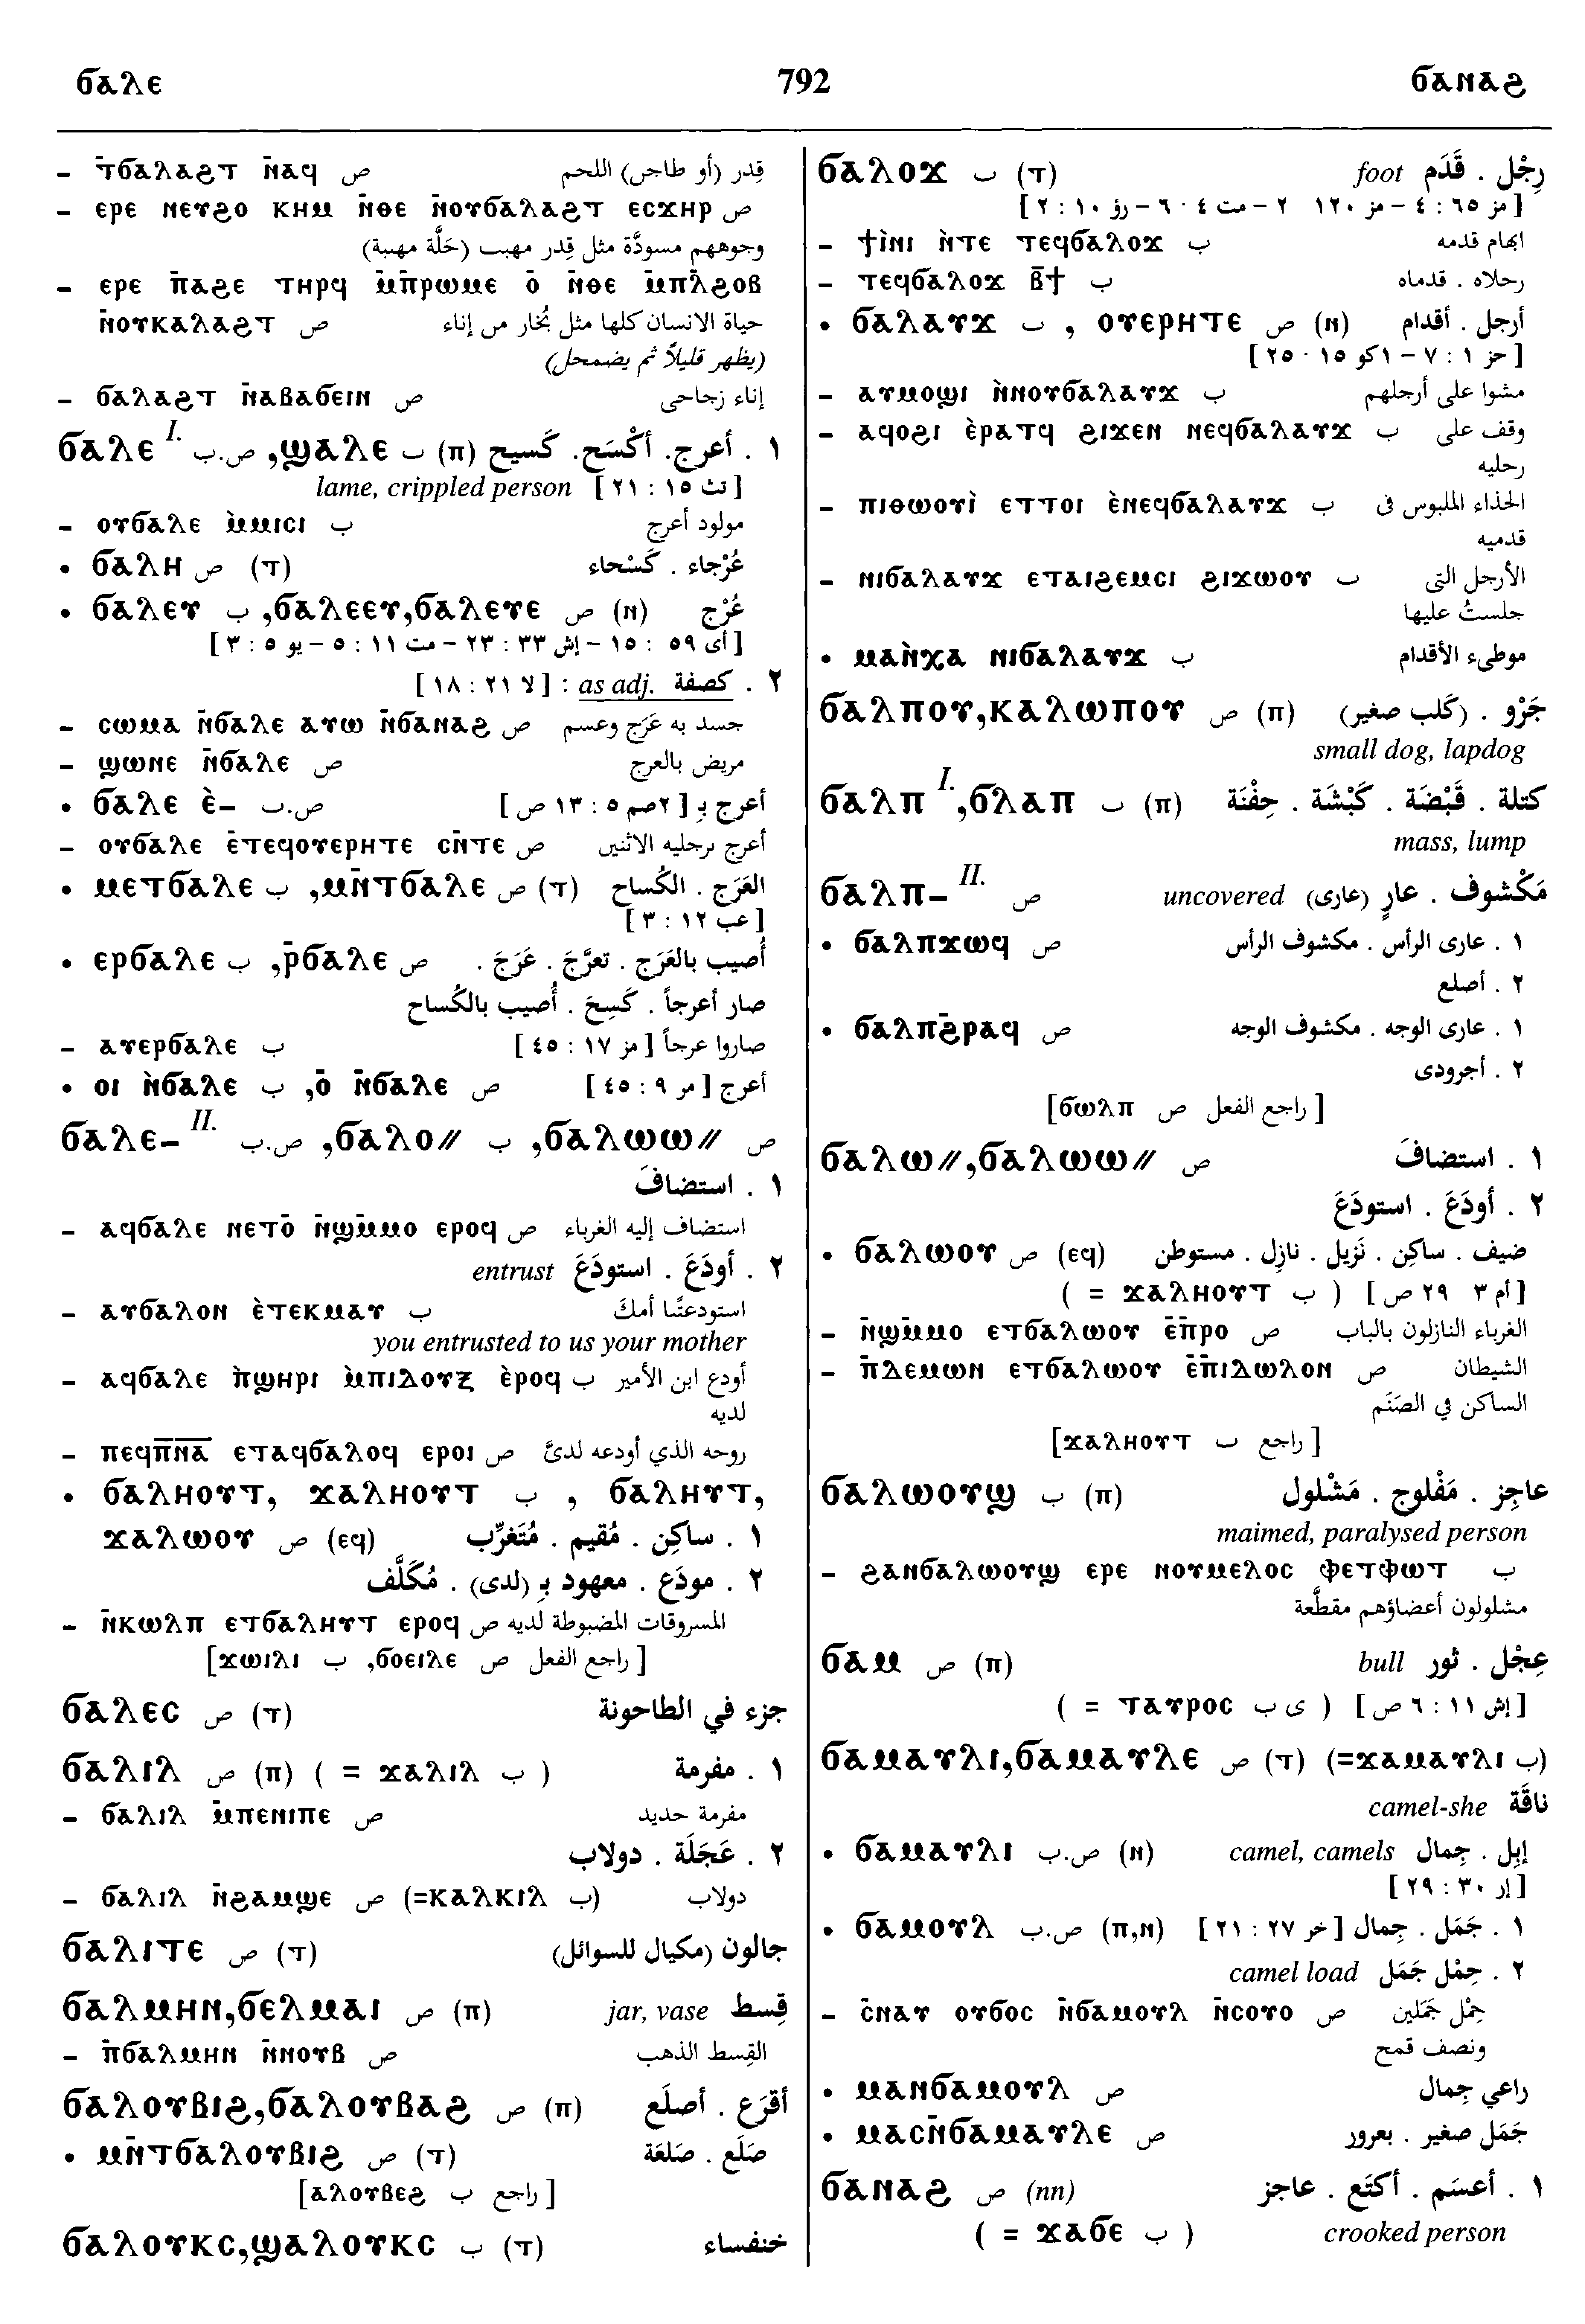 ϭⲁⲗⲉ 792 ϭⲁⲛⲁϩ
– ⲧ̄ϭⲁⲗⲁϩⲧ ⲛ̄ⲁϥ ص قِدر (أو طاجن) اللحم
– ⲉⲣⲉ ⲛⲉⲩϩⲟ ⲕⲏⲙ ⲛ̄ⲑⲉ ⲛ̄ⲟⲩϭⲁⲗⲁϩⲧ ⲉⲥϫⲏⲣ ص
وجوههم مسودَّة مثل قِدر مهبب (حَلَّة مهببة)
– ⲉⲣⲉ ⲡ̄ⲁϩⲉ ⲧⲏⲣϥ ⲙ̄ⲡ̄ⲣⲱⲙⲉ ⲟ̄ ⲛ̄ⲑⲉ ⲙ̄ⲡ̄ⲗ̄ϩⲟⲃ
ⲛ̄ⲟⲩⲕⲁⲗⲁϩⲧ ص حياة الانسان كلها مثل بُخار من إناء
(يظهر قليلاً ثم يضمحل)
– ϭⲁⲗⲁϩⲧ ⲛ̄ⲁⲃⲁϭⲉⲓⲛ ص إناء زجاجى
ϭⲁⲗⲉ I. ص.ب ,ϣⲁⲗⲉ ب (ⲡ) ١ . أعرج. أكْسَح. كَسيح
lame, crippled person [تث ١٥ : ٢١]
– ⲟⲩϭⲁⲗⲉ ⲙ̀ⲙⲓⲥⲓ ب مولود أعرج
• ϭⲁⲗⲏ ص (ⲧ) عُرْجاء . كَسْحاء
• ϭⲁⲗⲉⲩ ب ,ϭⲁⲗⲉⲉⲩ,ϭⲁⲗⲉⲩⲉ ص (ⲛ) عُرْج
[أى ٥٩ : ١٥ – إش ٣٣ : ٢٣ – مت ١١ : ٥ – يو ٥ : ٣]
٢ . كصفة as adj. : [لا ٢١ : ١٨]
– ⲥⲱⲙⲁ ⲛ̄ϭⲁⲗⲉ ⲁⲩⲱ ⲛ̄ϭⲁⲛⲁϩ ص جسد به عَرَج وعسم
– ϣⲱⲛⲉ ⲛ̄ϭⲁⲗⲉ ص مريض بالعرج
• ϭⲁⲗⲉ ⲉ̀– ص.ب أعرج بـِ [٢صم ٥ : ١٣ ص]
– ⲟⲩϭⲁⲗⲉ ⲉ̄ⲧⲉϥⲟⲩⲉⲣⲏⲧⲉ ⲥⲛ̄ⲧⲉ ص أعرج برجليه الاثنين
• ⲙⲉⲧϭⲁⲗⲉ ب ,ⲙⲛ̄ⲧϭⲁⲗⲉ ص (ⲧ) العَرَج . الكُساح
[عب ١٢ : ٣]
• ⲉⲣϭⲁⲗⲉ ب ,ⲣ̄ϭⲁⲗⲉ ص أُصيب بالعَرَج . تعرَّجَ . عَرَجَ .
صار أعرجاً . كَسِحَ . أُصيب بالكُساح
– ⲁⲩⲉⲣϭⲁⲗⲉ ب صاروا عرجاً [مز ١٧ : ٤٥]
• ⲟⲓ ⲛ̀ϭⲁⲗⲉ ب ,ⲟ̄ ⲛ̄ϭⲁⲗⲉ ص أعرج [مر ٩ : ٤٥]
ϭⲁⲗⲉ– II. ص.ب ,ϭⲁⲗⲟ// ب ,ϭⲁⲗⲱⲱ// ص
١ . استضافَ
– ⲁϥϭⲁⲗⲉ ⲛⲉⲧⲟ̄ ⲛ̄ϣⲙ̄ⲙⲟ ⲉⲣⲟϥ ص استضاف إليه الغرباء
٢ . أودَعَ . استودَعَ entrust
– ⲁⲩϭⲁⲗⲟⲛ ⲉ̀ⲧⲉⲕⲙⲁⲩ ب استودعتَنا أمكَ
you entrusted to us your mother
– ⲁϥϭⲁⲗⲉ ⲡ̀ϣⲏⲣⲓ ⲙ̀ⲡⲓⲇⲟⲩⲝ ⲉ̀ⲣⲟϥ ب أودع ابن الأمير
لديه
– ⲡⲉϥⲡ̅ⲛ̅ⲁ̅ ⲉⲧⲁϥϭⲁⲗⲟϥ ⲉⲣⲟⲓ ص روحه الذي أودعه لدىَّ
• ϭⲁⲗⲏⲟⲩⲧ, ϫⲁⲗⲏⲟⲩⲧ ب , ϭⲁⲗⲏⲩⲧ,
ϫⲁⲗⲱⲟⲩ ص (ⲉϥ) ١ . ساكِن . مُقيم . مُتَغرِّب
٢ . مودَع . معهود بـِ (لدى) . مُكَلَّف
– ⲛ̄ⲕⲱⲗⲡ ⲉⲧϭⲁⲗⲏⲩⲧ ⲉⲣⲟϥ ص المسروقات المضبوطة لديه
[راجع الفعل ص ϭⲟⲉⲓⲗⲉ, ب ϫⲱⲓⲗⲓ]
ϭⲁⲗⲉⲥ ص (ⲧ) جزء في الطاحونة
ϭⲁⲗⲓⲗ ص (ⲡ) ( = ϫⲁⲗⲓⲗ ب ) ١ . مفرمة
– ϭⲁⲗⲓⲗ ⲙ̄ⲡⲉⲛⲓⲡⲉ ص مفرمة حديد
٢ . عَجَلَة . دولاب
– ϭⲁⲗⲓⲗ ⲛ̄ϩⲁⲙϣⲉ ص (=ⲕⲁⲗⲕⲓⲗ ب) دولاب
ϭⲁⲗⲓⲧⲉ ص (ⲧ) جالون (مكيال للسوائل)
ϭⲁⲗⲙⲏⲛ,ϭⲉⲗⲙⲁⲓ ص (ⲡ) jar, vase قِسط
– ⲡ̄ϭⲁⲗⲙⲏⲛ ⲛ̄ⲛⲟⲩⲃ ص القِسط الذهب
ϭⲁⲗⲟⲩⲃⲓϩ,ϭⲁⲗⲟⲩⲃⲁϩ ص (ⲡ) أقرَع . أصلَع
• ⲙⲛ̄ⲧϭⲁⲗⲟⲩⲃⲓϩ ص (ⲧ) صَلَع . صَلعَة
[راجع ب ⲁⲗⲟⲩⲃⲉϩ]
ϭⲁⲗⲟⲩⲕⲥ,ϣⲁⲗⲟⲩⲕⲥ ب (ⲧ) خنفساء
ϭⲁⲗⲟϫ ب (ⲧ) foot رِجْل . قَدَم
[مز ٦٥ : ٤ – مز ١٢٠ ٢ – مت ٤ ٦ – رؤ ١٠ : ٢]
– ϯⲓ̀ⲛⲓ ⲛ̀ⲧⲉ ⲧⲉϥϭⲁⲗⲟϫ ب ابهام قدمه
– ⲧⲉϥϭⲁⲗⲟϫ ⲃ̄ϯ ب رجلاه . قدماه
• ϭⲁⲗⲁⲩϫ ب , ⲟⲩⲉⲣⲏⲧⲉ ص (ⲛ) أرجل . أقدام
[حز ١ : ٧ – ١كو ١٥ ٢٥]
– ⲁⲩⲙⲟϣⲓ ⲛ̀ⲛⲟⲩϭⲁⲗⲁⲩϫ ب مشوا على أرجلهم
– ⲁϥⲟϩⲓ ⲉ̀ⲣⲁⲧϥ ϩⲓϫⲉⲛ ⲛⲉϥϭⲁⲗⲁⲩϫ ب وقف على
رجليه
– ⲡⲓⲑⲱⲟⲩⲓ̀ ⲉⲧⲧⲟⲓ ⲉ̀ⲛⲉϥϭⲁⲗⲁⲩϫ ب الحذاء الملبوس فى
قدميه
– ⲛⲓϭⲁⲗⲁⲩϫ ⲉⲧⲁⲓϩⲉⲙⲥⲓ ϩⲓϫⲱⲟⲩ ب الأرجل التى
جلستُ عليها
• ⲙⲁⲛ̀ⲭⲁ ⲛⲓϭⲁⲗⲁⲩϫ ب موطىء الأقدام
ϭⲁⲗⲡⲟⲩ,ⲕⲁⲗⲱⲡⲟⲩ ص (ⲡ) جَرْو . (كَلب صغير)
small dog, lapdog
ϭⲁⲗⲡ I.,ϭⲗⲁⲡ ب (ⲡ) كتلة . قَبْضَة . كَبْشَة . حِفْنَة
mass, lump
ϭⲁⲗⲡ– II. ص uncovered مَكْشوف . عارٍ (عارى)
• ϭⲁⲗⲡϫⲱϥ ص ١ . عارى الرأس . مكشوف الرأس
٢ . أصلع
• ϭⲁⲗⲡϩ̄ⲣⲁϥ ص ١ . عارى الوجه . مكشوف الوجه
٢ . أجرودى
[راجع الفعل ص ϭⲱⲗⲡ]
ϭⲁⲗⲱ//,ϭⲁⲗⲱⲱ// ص ١ . استضافَ
٢ . أودَعَ . استودَعَ
• ϭⲁⲗⲱⲟⲩ ص (ⲉϥ) ضيف . ساكِن . نَزيل . نازِل . مستوطن
( = ϫⲁⲗⲏⲟⲩⲧ ب ) [أم ٣ ٢٩ ص]
– ⲛ̄ϣⲙ̄ⲙⲟ ⲉⲧϭⲁⲗⲱⲟⲩ ⲉ̄ⲡ̄ⲣⲟ ص الغرباء النازلون بالباب
– ⲡ̄ⲇⲉⲙⲱⲛ ⲉⲧϭⲁⲗⲱⲟⲩ ⲉ̄ⲡ̄ⲓⲇⲱⲗⲟⲛ ص الشيطان
الساكن في الصَنَم
[راجع ب ϫⲁⲗⲏⲟⲩⲧ]
ϭⲁⲗⲱⲟⲩϣ ب (ⲡ) عاجِز . مَفْلوج . مَشْلول
maimed, paralysed person
– ϩⲁⲛϭⲁⲗⲱⲟⲩϣ ⲉⲣⲉ ⲛⲟⲩⲙⲉⲗⲟⲥ ⲫⲉⲧⲫⲱⲧ ب
مشلولون أعضاؤهم مقطَّعة
ϭⲁⲙ ص (ⲡ) bull عِجْل . ثور
( = ⲧⲁⲩⲣⲟⲥ ى ب ) [إش ١١ : ٦ ص]
ϭⲁⲙⲁⲩⲗⲓ,ϭⲁⲙⲁⲩⲗⲉ ص (ⲧ) (=ϫⲁⲙⲁⲩⲗⲓ ب)
camel-she ناقَة
• ϭⲁⲙⲁⲩⲗⲓ ص.ب (ⲛ) camel, camels إبِل . جِمال
[إر ٣٠ : ٢٩]
• ϭⲁⲙⲟⲩⲗ ص.ب (ⲡ,ⲛ) ١ . جَمَل . جِمال [خر ٢٧ : ٢١]
camel load ٢ . حِمْل جَمَل
– ⲥ̄ⲛⲁⲩ ⲟⲩϭⲟⲥ ⲛ̄ϭⲁⲙⲟⲩⲗ ⲛ̄ⲥⲟⲩⲟ ص حِمْل جَمَلين
ونصف قمح
• ⲙⲁⲛϭⲁⲙⲟⲩⲗ ص راعي جِمال
• ⲙⲁⲥⲛ̄ϭⲁⲙⲁⲩⲗⲉ ص جَمَل صغير . بعرور
ϭⲁⲛⲁϩ ص (nn) ١ . أعسَم . أكتَع . عاجز
( = ϫⲁϭⲉ ب ) crooked person